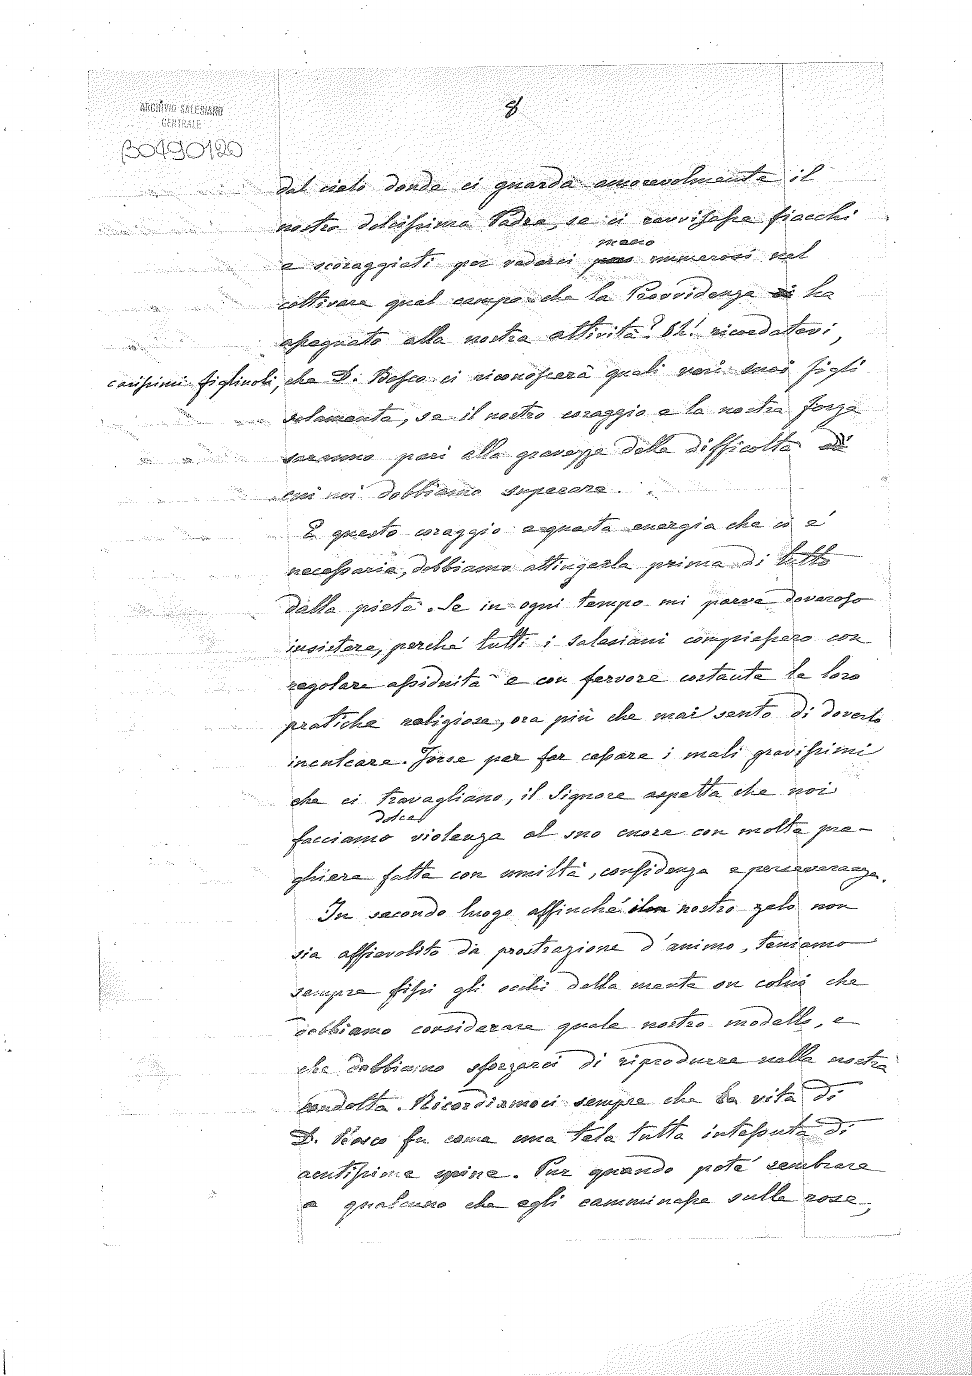 8
ARCHIVIO SALESIANO
CENTRALE
B0490120
dal cielo donde ci guarda amorevolmente il
nostro dolcissimo Padre, se ci ravvisasse fiacchi
meno
e scoraggiati per vederci numerosi nel
coltivare quel campo che la Provvidenza ha
assegnato alla nostra attività? Oh! ricordatevi,
carissimi figliuoli, che D. Bosco ci riconoscerà quali veri suoi figli
solamente, se il nostro coraggio e la nostra forza
saranno pari alla gravezza delle difficoltà di
cui noi dobbiamo superare.
E questo coraggio e questa energia che ci è
necessaria, dobbiamo attingerla prima di tutto
dalla pietà. Se in ogni tempo mi parve doveroso
insistere, perché tutti i salesiani compiessero con
regolare assiduità e con fervore costante le loro
pratiche religiose, ora più che mai sento di doverlo
inculcare. Forse per far cessare i mali gravissimi
che ci travagliano, il Signore aspetta che noi
dolce
facciamo violenza al suo cuore con molta pre-
ghiera fatta con umiltà, confidenza e perseveranza.
In secondo luogo affinché il nostro zelo non
sia affievolito da prostrazione d'animo, teniamo
sempre fissi gli occhi della mente on colui che
dobbiamo considerare quale nostro modello, e
che dobbiamo sforzarci di riprodurre nella nostra
condotta. Ricordiamoci sempre che la vita di
D. Bosco fu come una tela tutta intessuta di
acutissime spine. Pur quando poté sembrare
a qualcuno che egli camminasse sulle rose,